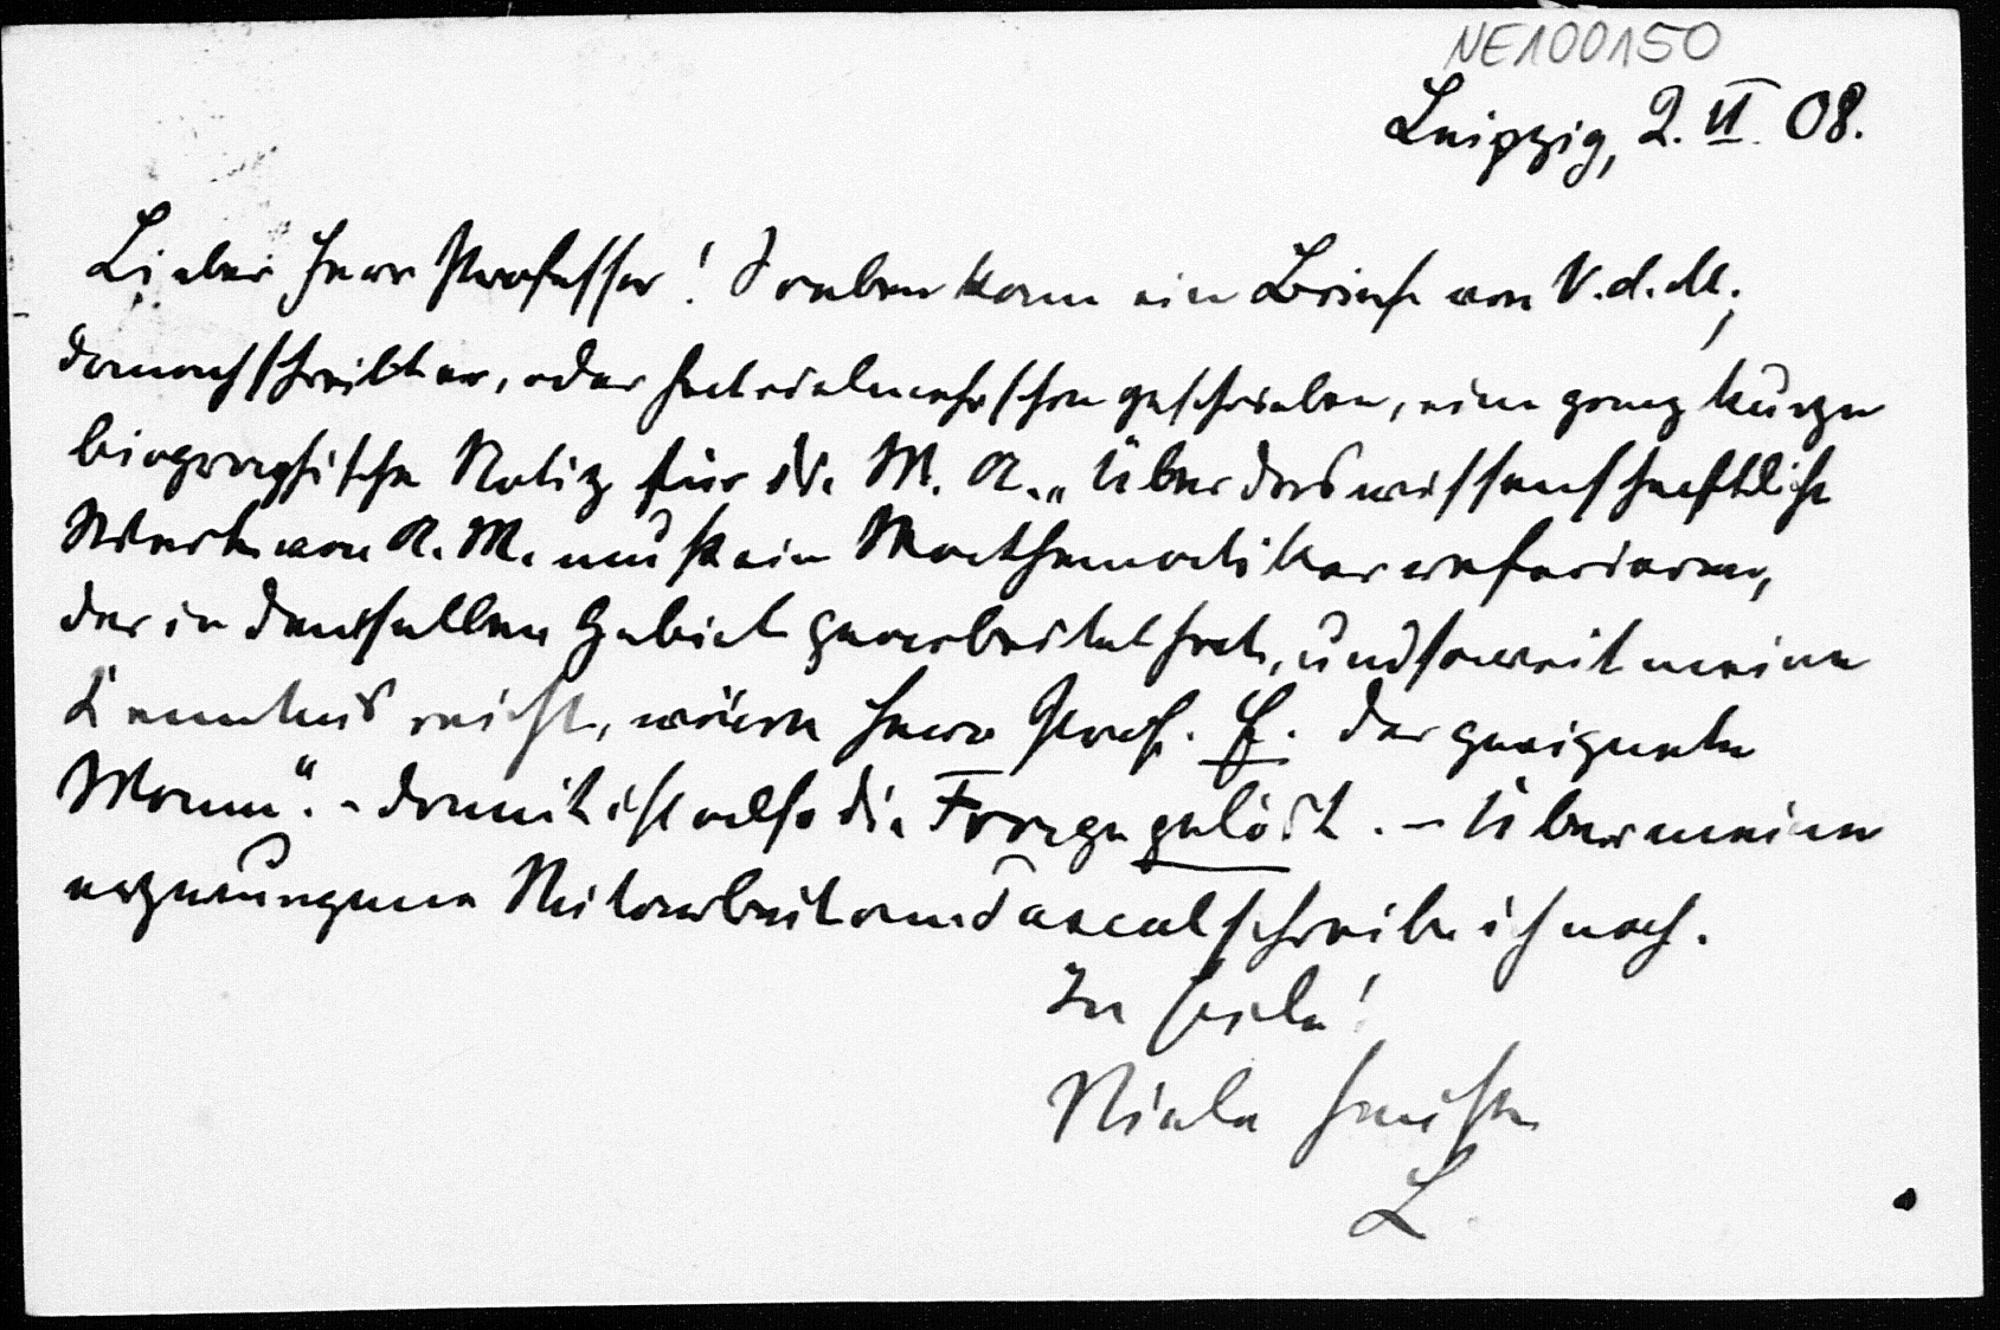 NE100150
Leipzig, 2. VI. 08.
Lieber Herr Professor! Soeben kam ein Brief von V. d. M.;
danach schreibt er, oder hat vielmehr schon geschrieben, eine ganz kurze
biographische Notiz für die M. A. „Über das wissenschaftliche
Werk von A. M. muß ein Mathematiker referieren,
der in demselben Gebiete gearbeitet hat, und soweit meine
Kenntnis reicht, wäre Herr Prof. E. der geeignete
Mann“. – Damit ist also die Frage gelöst. – Über meine
erzwungene Mitarbeit am Pascal schreibe ich noch.
In Eile!
Viele Grüße
L.